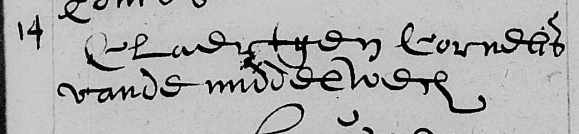 14 Claertgen Cornelis
vande middelwech